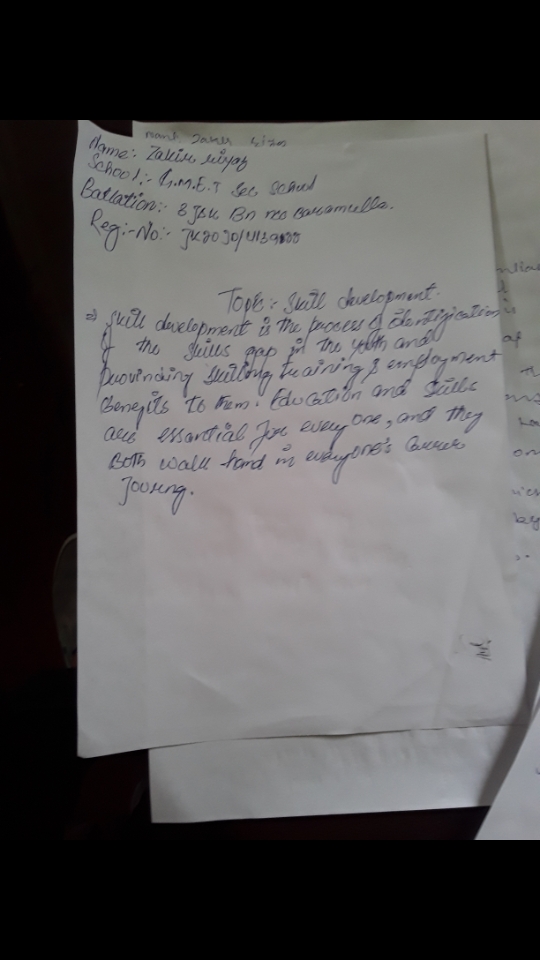 Name: Zakir
School:- G.M.E.T Sec School
Battation:- 3 J&K Bn ncc Baramulla.
Reg:-No:-
Topic:- Skill development.
⇒ Skill development is the process of identigication
of the skills gap in the youth and
provinding skilling training & employment
Benefits to them. Education and skills
are essential for every one, and they
Both walk-hand in everyone's Carrer
Jouring.